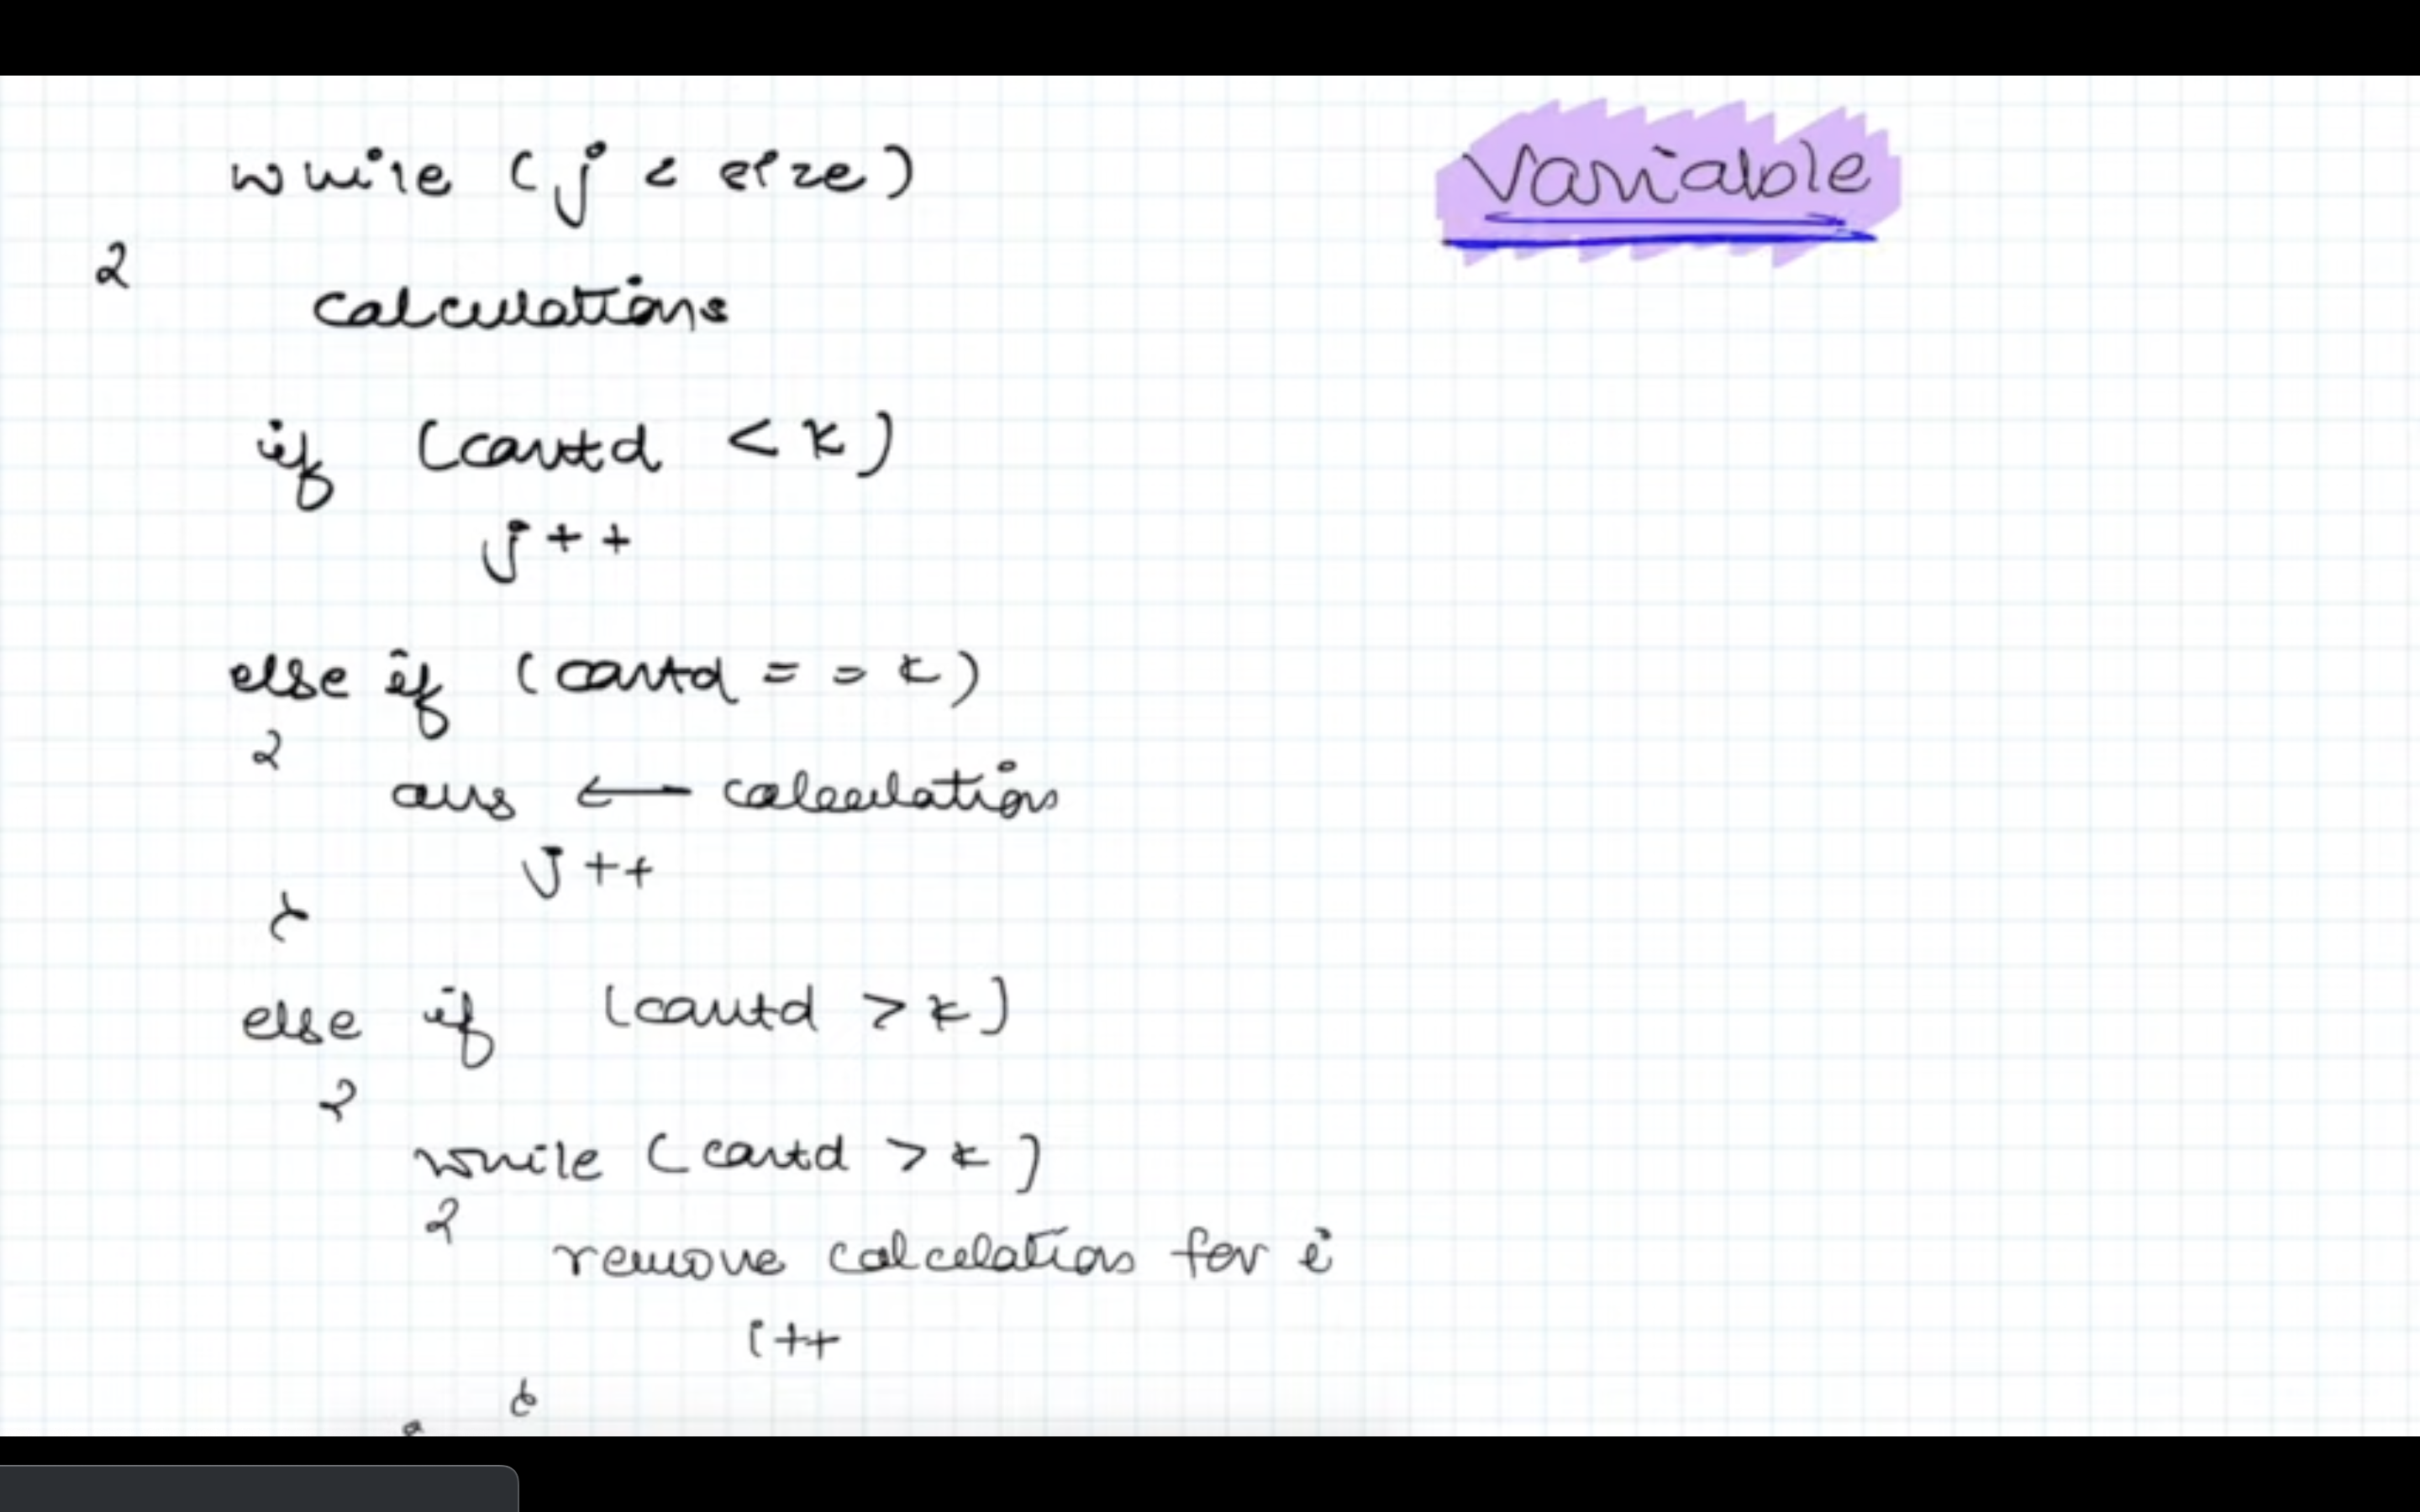 while (j < size)
Variable
{
calculations
if (cond < k)
j++
else if (cond == k)
{
ans ← calculation
j++
}
else if (cond > k)
{
while (cond > k)
{
remove calculation for i
i++
}